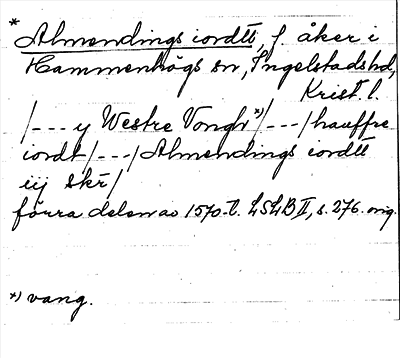 * Almendings iordtt, f. åker i
Hammenhögs sn, Ingelstads hd,
Krist. l.
/--- y Westre Vongh *)/---/ hauffre
iordt /---/ Almendings iordtt
iij skr/
förra delen av 1570-t. LSLB II, s. 276. orig.
*) vang.